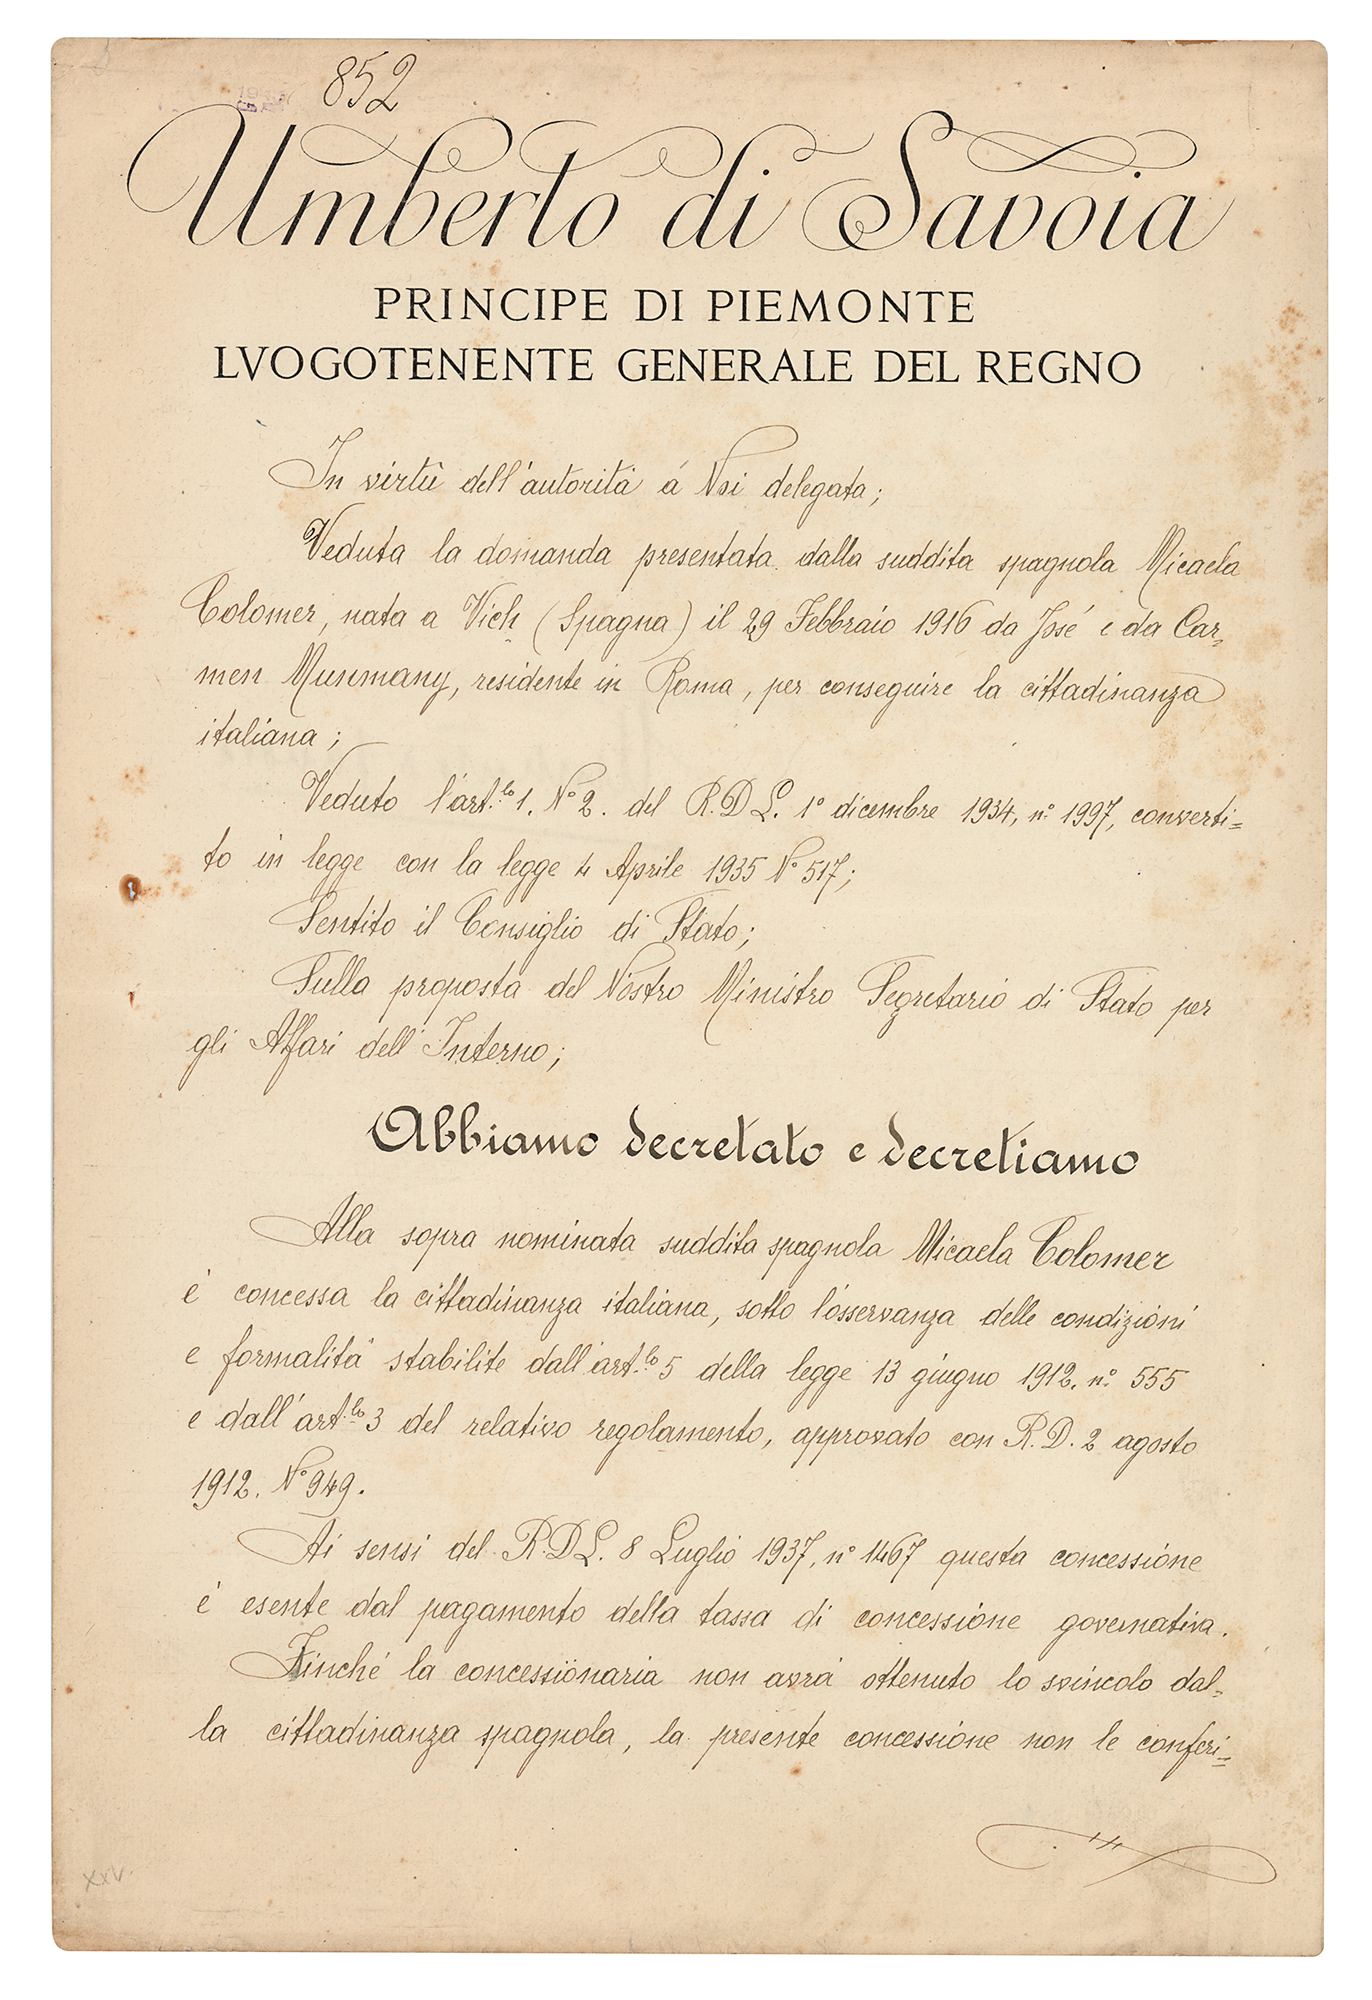 852
Umberto di Savoia
PRINCIPE DI PIEMONTE
LVOGOTENENTE GENERALE DEL REGNO
In virtù dell'autorità á Noi delegata;
Veduta la domanda presentata dalla suddita spagnola Micaela
Colomer, nata a Vich (Spagna) il 29 Febbraio 1916 da José e da Car=
men Munmany, residente in Roma, per conseguire la cittadinanza
italiana;
Veduto l'art.lo 1. N° 2. del R.D.L. 1° dicembre 1934, n° 1997, converti=
to in legge con la legge 4 Aprile 1935 N° 517;
Sentito il Consiglio di Stato;
Sulla proposta del Nostro Ministro Segretario di Stato per
gli Affari dell'Interno;
Abbiamo decretato e decretiamo
Alla sopra nominata suddita spagnola Micaela Colomer
è concessa la cittadinanza italiana, sotto l'osservanza delle condizioni
e formalità stabilite dall'art.lo 5 della legge 13 giugno 1912. n° 555
e dall'art.lo 3 del relativo regolamento, approvato con R.D. 2 agosto
1912. N° 949.
Ai sensi del R.D.L. 8 Luglio 1937, n° 1467 questa concessione
è esente dal pagamento della tassa di concessione governativa.
Finché la concessionaria non avrà ottenuto lo svincolo dal=
la cittadinanza spagnola, la presente concessione non le conferi=
XXV.